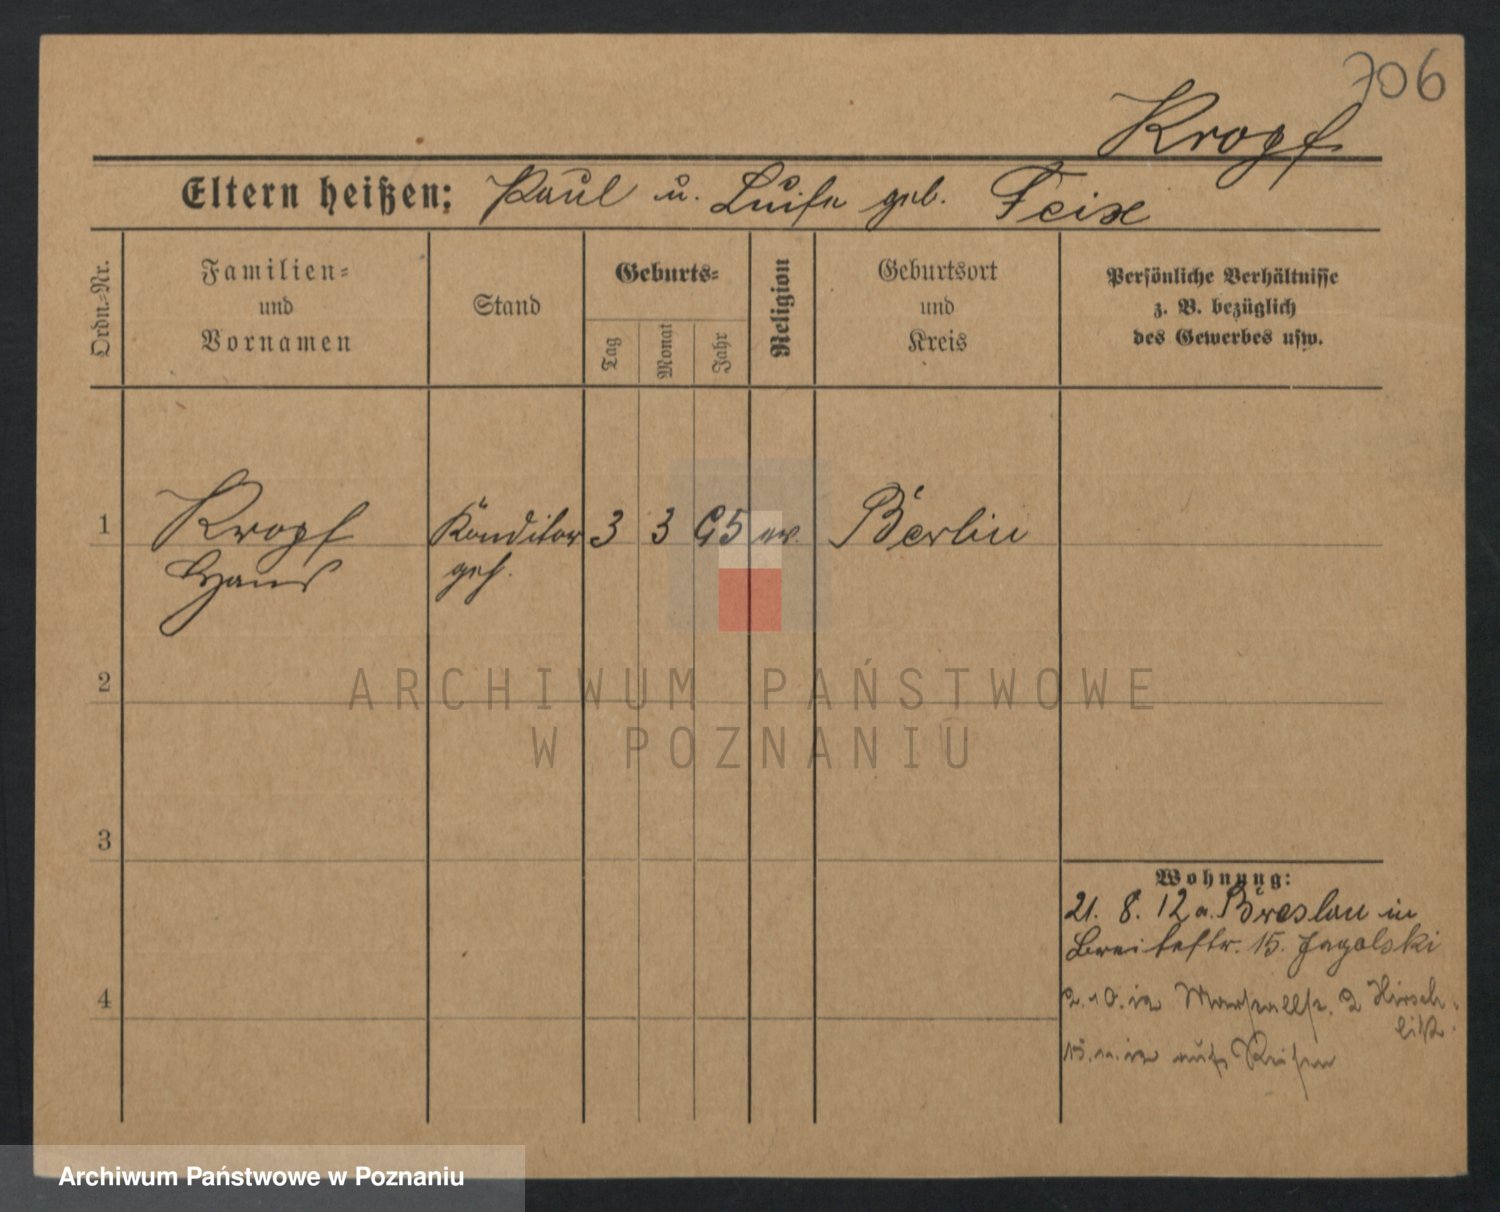 706
Kropf
Eltern heißen: Paul u. Luise geb. Feix
Ordn.-Nr.
Familien-
und
Vornamen
Stand
Geburts-
Tag
Monat
Jahr
Religion
Geburtsort
und
Kreis
Persönliche Verhältnisse
z. B. bezüglich
des Gewerbes usw.
1
Kropf
Hans
Konditor
geh.
3
3
95
ev.
Berlin
2
ARCHIWUM PAŃSTWOWE
W POZNANIU
3
Wohnung:
21. 8. 12 a. Breslau in
Breitestr. 15. Jagolski
4
2. 10. 12 2 Hirsch
12 auf Reisen
Archiwum Państwowe w Poznaniu